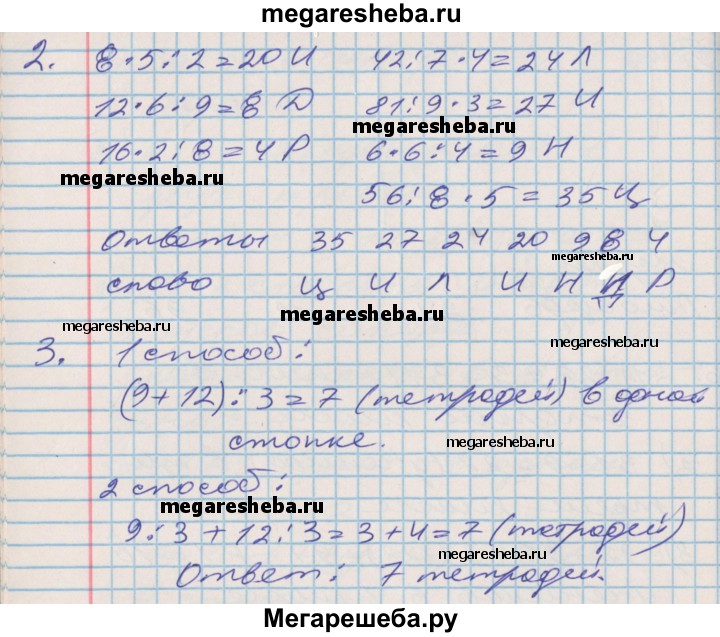 megaresheba.ru
2. 8·5:2=20 И 42:7·4=24 Л
12·6:9=8 Д 81:9·3=27 И
megaresheba.ru
16·2:8=4 Р 6·6:4=9 Н
megaresheba.ru
56:8·5=35 Ц
Ответы 35 27 24 20 9 8 4
megaresheba.ru
слово Ц И Л И Н Д Р
megaresheba.ru megaresheba.ru
3. 1 способ:
(9+12):3=7 (тетрадей) в одной
стопке. megaresheba.ru
2 способ:
megaresheba.ru
9:3+12:3=3+4=7 (тетрадей)
megaresheba.ru
Ответ: 7 тетрадей.
Мегарешеба.ру